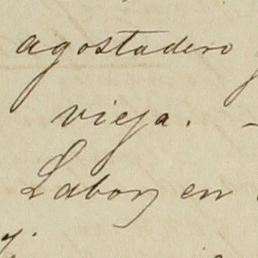 agostadero
vieja. -
Labor en